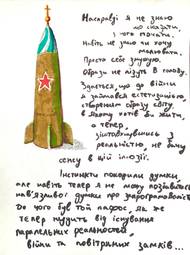 Насправді я не знаю
що сказати,
з чого почати.
Навіть не знаю чи хочу
малювати.
Просто себе змушую.
Образи не лізуть в голову.
Здається, що до війни
я займався естетизацією,
створенням образу світу,
в якому хотів би жити,
а тепер,
зіштовхнувшись з
реальністю, не бачу
сенсу в цій ілюзії.
Інстинкти покорили думки,
але навіть тепер я не можу позбавитись
нав'язливої думки про
До чого був той пафос, як же
тепер нудить від існування
паралельних реальностей,
війни та повітряних замків...